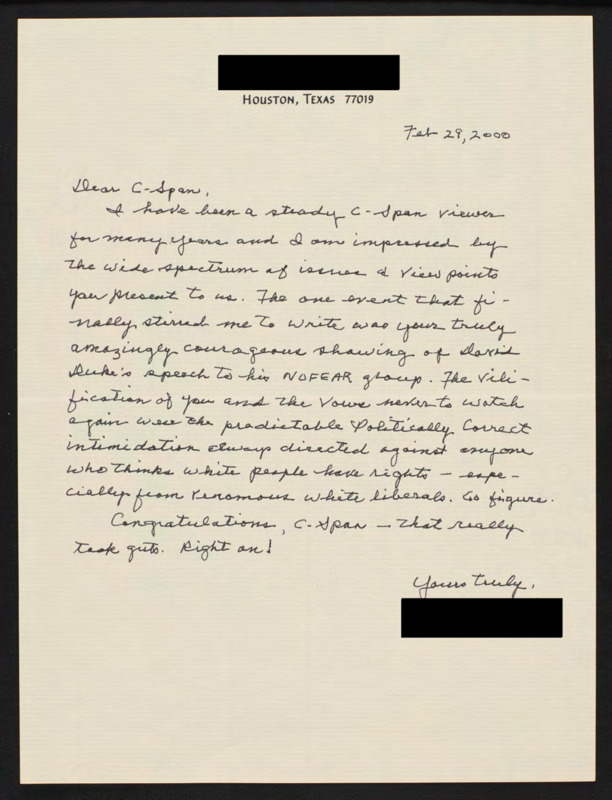 HOUSTON, TEXAS 77019
Feb 29, 2000
Dear C-Span,
I have been a steady C-Span viewer
for many years and I am impressed by
the wide spectrum of issues & view points
you present to us. The one event that fi-
nally stirred me to write was your truly
amazingly courageous showing of David
Duke's speech to his NOFEAR group. The vili-
fication of you and the vows never to watch
again were the predictable Politically Correct
intimidation always directed against anyone
who thinks white people have rights — espe-
cially from venomous white liberals. Go figure.
Congratulations, C-Span — that really
took guts. Right on!
Yours truly,